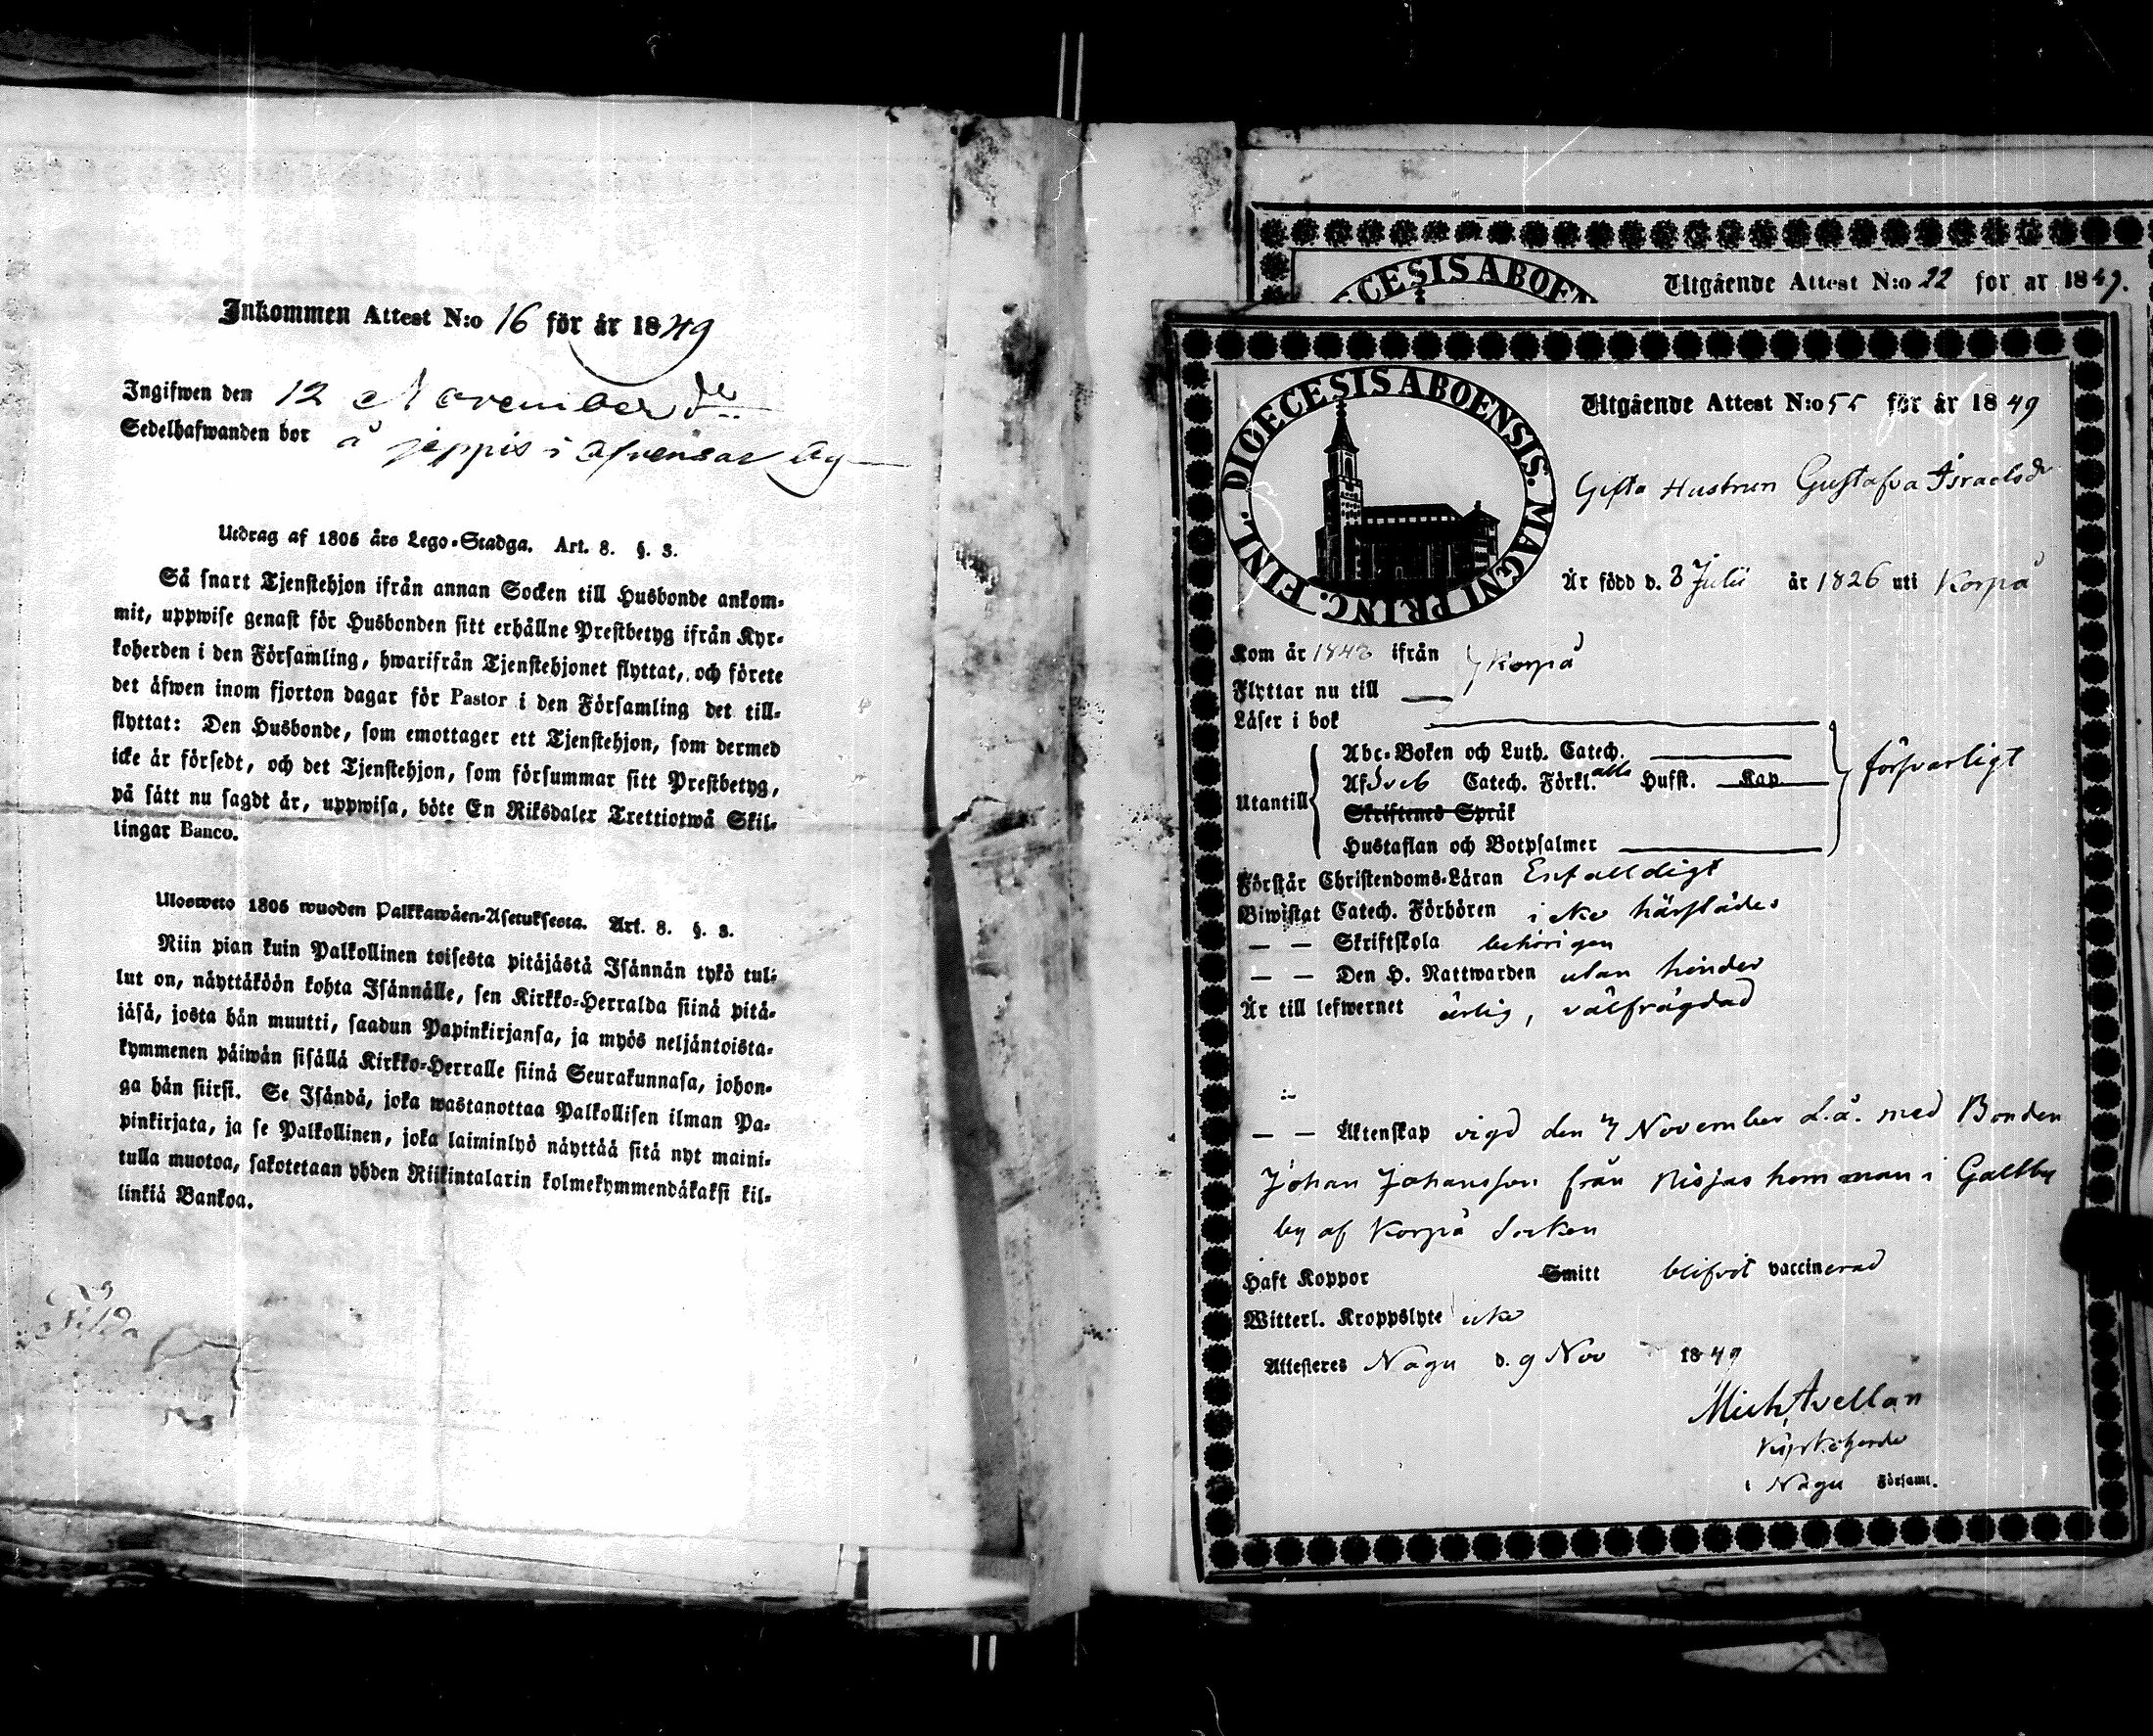 Inkommen Attest N:o 16 för år 1849
Ingifwen den 12 November
Sedelhafwanden bor å jeppis i Afvensar by
Utdrag af 1805 års Lego-Stadga. Art. 8. §. 3.
Så snart Tjenstehjon ifrån annan Socken till Husbonde ankom-
mit, uppwise genast för Husbonden sitt erhållne Prestbetyg ifrån Kyr-
koherden i den Församling, hwarifrån Tjenstehjonet flyttat, och förete
det äfwen inom fjorton dagar för Pastor i den Församling det till-
flyttat: Den Husbonde, som emottager ett Tjenstehjon, som dermed
icke är försedt, och det Tjenstehjon, som försummar sitt Prestbetyg,
på sätt nu sagdt är, uppwisa, böte En Riksdaler Trettiotwå Skil-
lingar Banco.
Ulosweto 1805 wuoden Palkkawäen-Asetuksesta. Art. 8. §. 3.
Niin pian kuin Palkollinen toisesta pitäjästä Isännän tykö tul-
lut on, näyttäköön kohta Isännälle, sen Kirkko-Herralda siinä pitä-
jäsä, josta hän muutti, saadun Papinkirjansa, ja myös neljäntoista-
kymmenen päiwän sisällä Kirkko-Herralle siinä Seurakunnasa, johon-
ga hän siirsi. Se Isändä, joka wastanottaa Palkollisen ilman Pa-
pinkirjata, ja se Palkollinen, joka laiminlyö näyttää sitä nyt maini-
tulla muotoa, sakotetaan yhden Riikintalarin kolmekymmendäkaksi kil-
linkiä Bankoa.
Utgående Attest N:o 22 för år 1849.
DIOECESIS ABOEN
Utgående Attest N:o 55 för år 1849
DIOECESIS ABOENSIS. MAGNI PRINC. FINL.
Gifta Hustrun Gustafva Israelsdr
Är född d. 8 Julii år 1826 uti Korpå
Kom år 1848 ifrån } Korpå
Flyttar nu till
Läser i bok
Utantill { Abc-Boken och Luth. Catech.
Af Sveb Catech. Förkl. alla Husst. Kap.
Skriftenes Språk
Hustaflan och Botpsalmer } försvarligt
Förstår Christendoms-Läran Enfalldigt
Biwistat Catech. Förhören icke härstädes
— — Skriftskola behörigen
— — Den H. Nattwarden utan hinder
Är till lefwernet ärlig, välfrägdad
— — Äktenskap vigd den 7 November d.å. med Bonden
Johan Johansson från Nisjas hemman i Galtby
by af Korpå Socken
Haft Koppor Smitt blifvit vaccinerad
Witterl. Kroppslyte icke
Attesteres Nagu d. 9 Nov 1849
Mich Avellan
Kyrkoherde
i Nagu Församl.